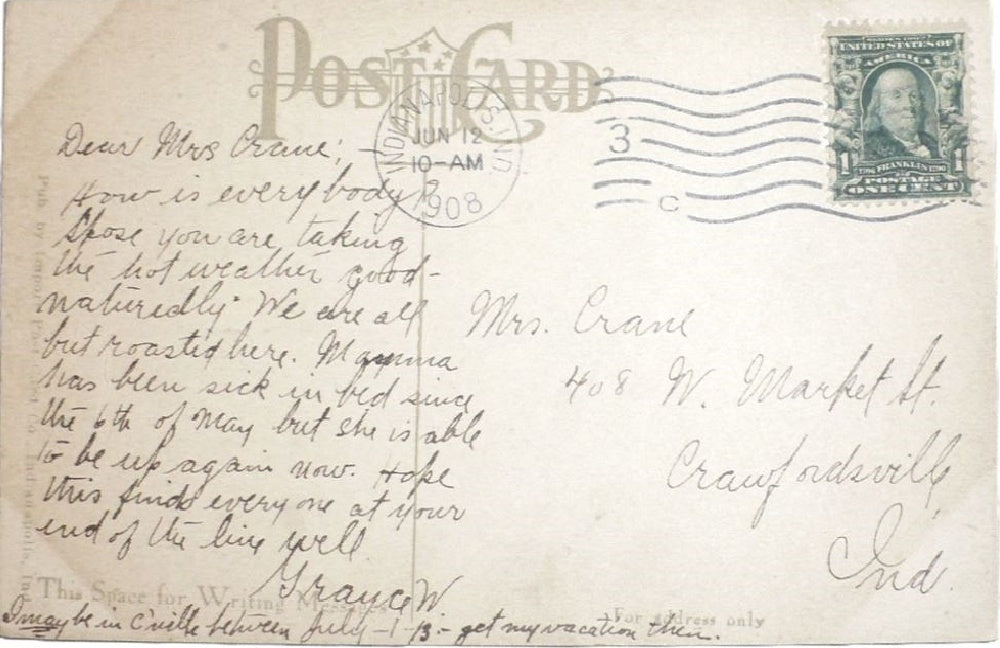 POST CARD
INDIANAPOLIS, IND
JUN 12
10-AM
1908
3
C
UNITED STATES OF
AMERICA
1 FRANKLIN 1
ONE CENT
Dear Mrs Crane;
How is everybody?
Spose you are taking
the hot weather good-
naturedly. We are all
but roasted here. Mamma
has been sick in bed since
the 6th of May but she is able
to be up again now. Hope
this finds everyone at your
end of the line well
Grayce W.
I may be in C'ville between July -1-13- get my vacation then.
Mrs. Crane
408 W. Market St.
Crawfordsville
Ind.
This Space for Writing Messages
For address only
Pub. by Import Post Card Co. Indianapolis, Ind.